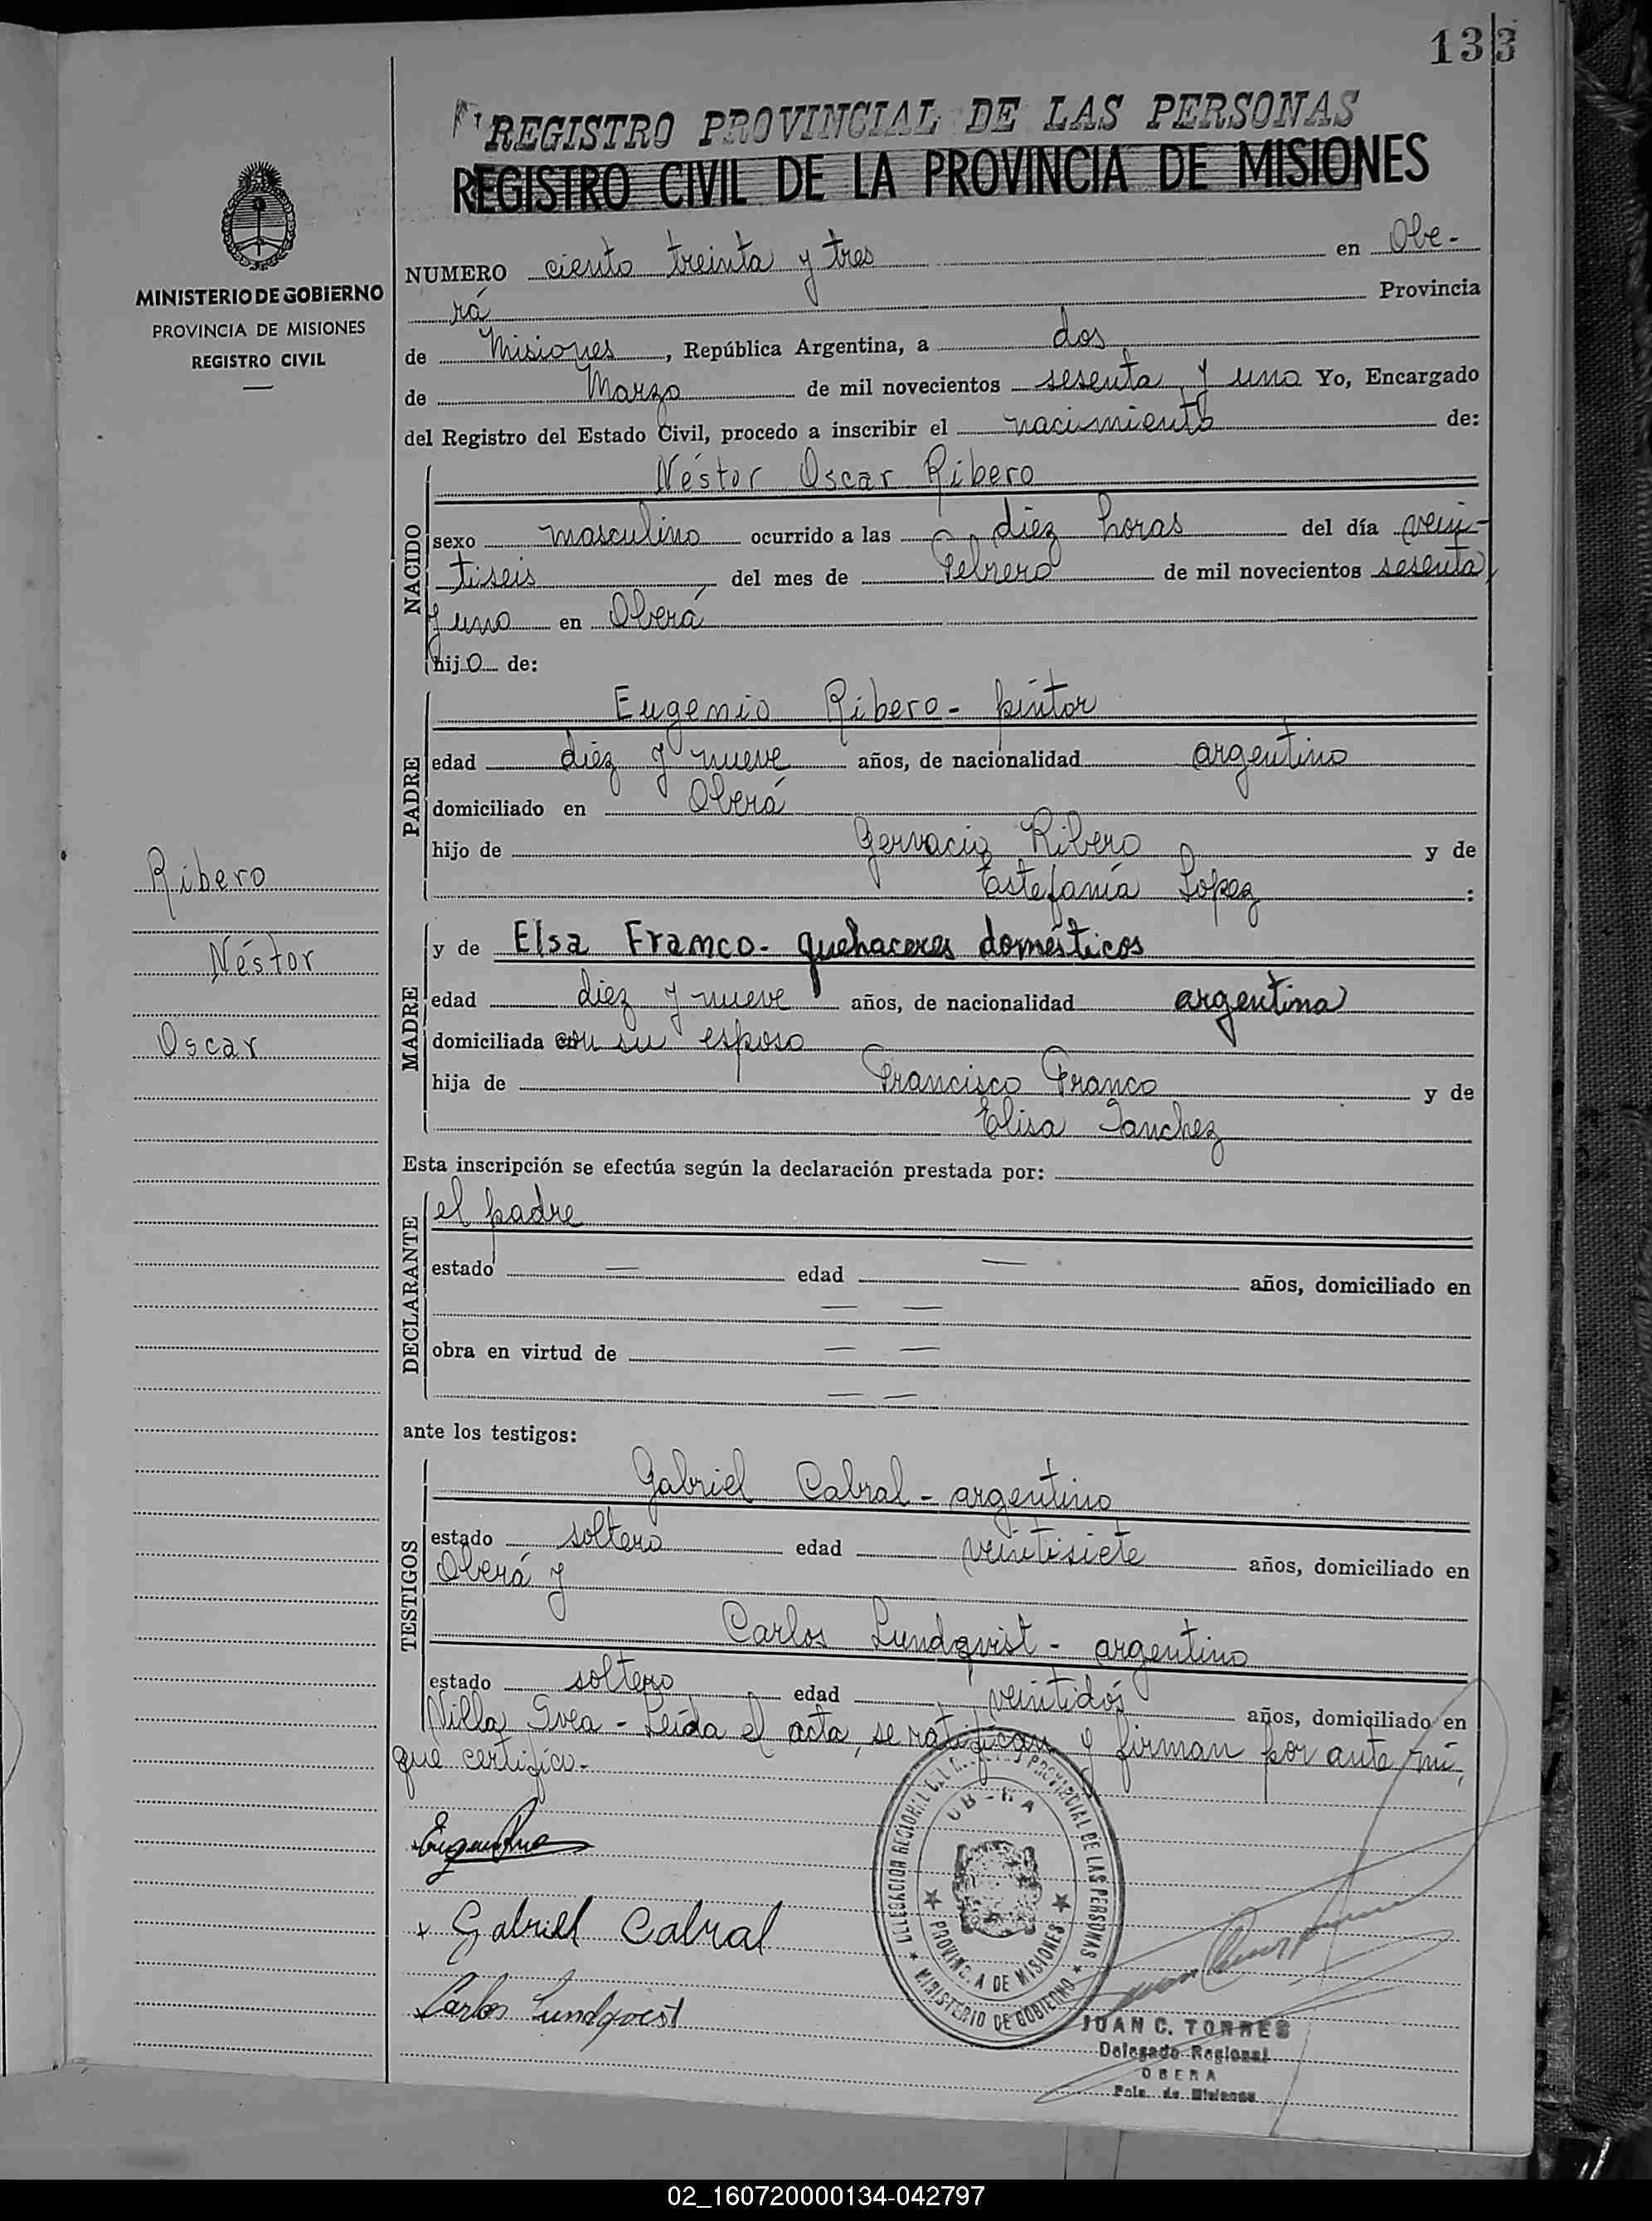 133
REGISTRO PROVINCIAL DE LAS PERSONAS
REGISTRO CIVIL DE LA PROVINCIA DE MISIONES
MINISTERIO DE GOBIERNO
PROVINCIA DE MISIONES
REGISTRO CIVIL
NUMERO ciento treinta y tres en Obe-
rá Provincia
de Misiones, República Argentina, a dos
de Marzo de mil novecientos sesenta y uno Yo, Encargado
del Registro del Estado Civil, procedo a inscribir el nacimiento de:
NACIDO
Néstor Oscar Ribero
sexo masculino ocurrido a las diez horas del día vein-
tiseis del mes de Febrero de mil novecientos sesenta
y uno en Oberá
hijo de:
PADRE
Eugenio Ribero - pintor
edad diez y nueve años, de nacionalidad argentino
domiciliado en Oberá
hijo de Gervacio Ribero y de
Estefanía Lopez :
MADRE
y de Elsa Franco - quehaceres domésticos
edad diez y nueve años, de nacionalidad argentina
domiciliada con su esposo
hija de Francisco Franco y de
Elisa Sanchez
Esta inscripción se efectúa según la declaración prestada por:
DECLARANTE
el padre
estado — edad — años, domiciliado en
— —
obra en virtud de — —
— —
ante los testigos:
TESTIGOS
Gabriel Cabral - argentino
estado soltero edad veintisiete años, domiciliado en
Oberá y
Carlos Lundqvist - argentino
estado soltero edad veintidós años, domiciliado en
Villa Svea - Leída el acta, se ratifican y firman por ante mí,
que certifico.-
Ribero
Néstor
Oscar
Gabriel Cabral
Carlos Lundqvist
DELEGACION REGIONAL PROVINCIAL DE LAS PERSONAS
OBERA
PROVINCIA DE MISIONES
MINISTERIO DE GOBIERNO
JUAN C. TORRES
Delegado Regional
OBERA
Pcia. de Misiones
02_160720000134-042797